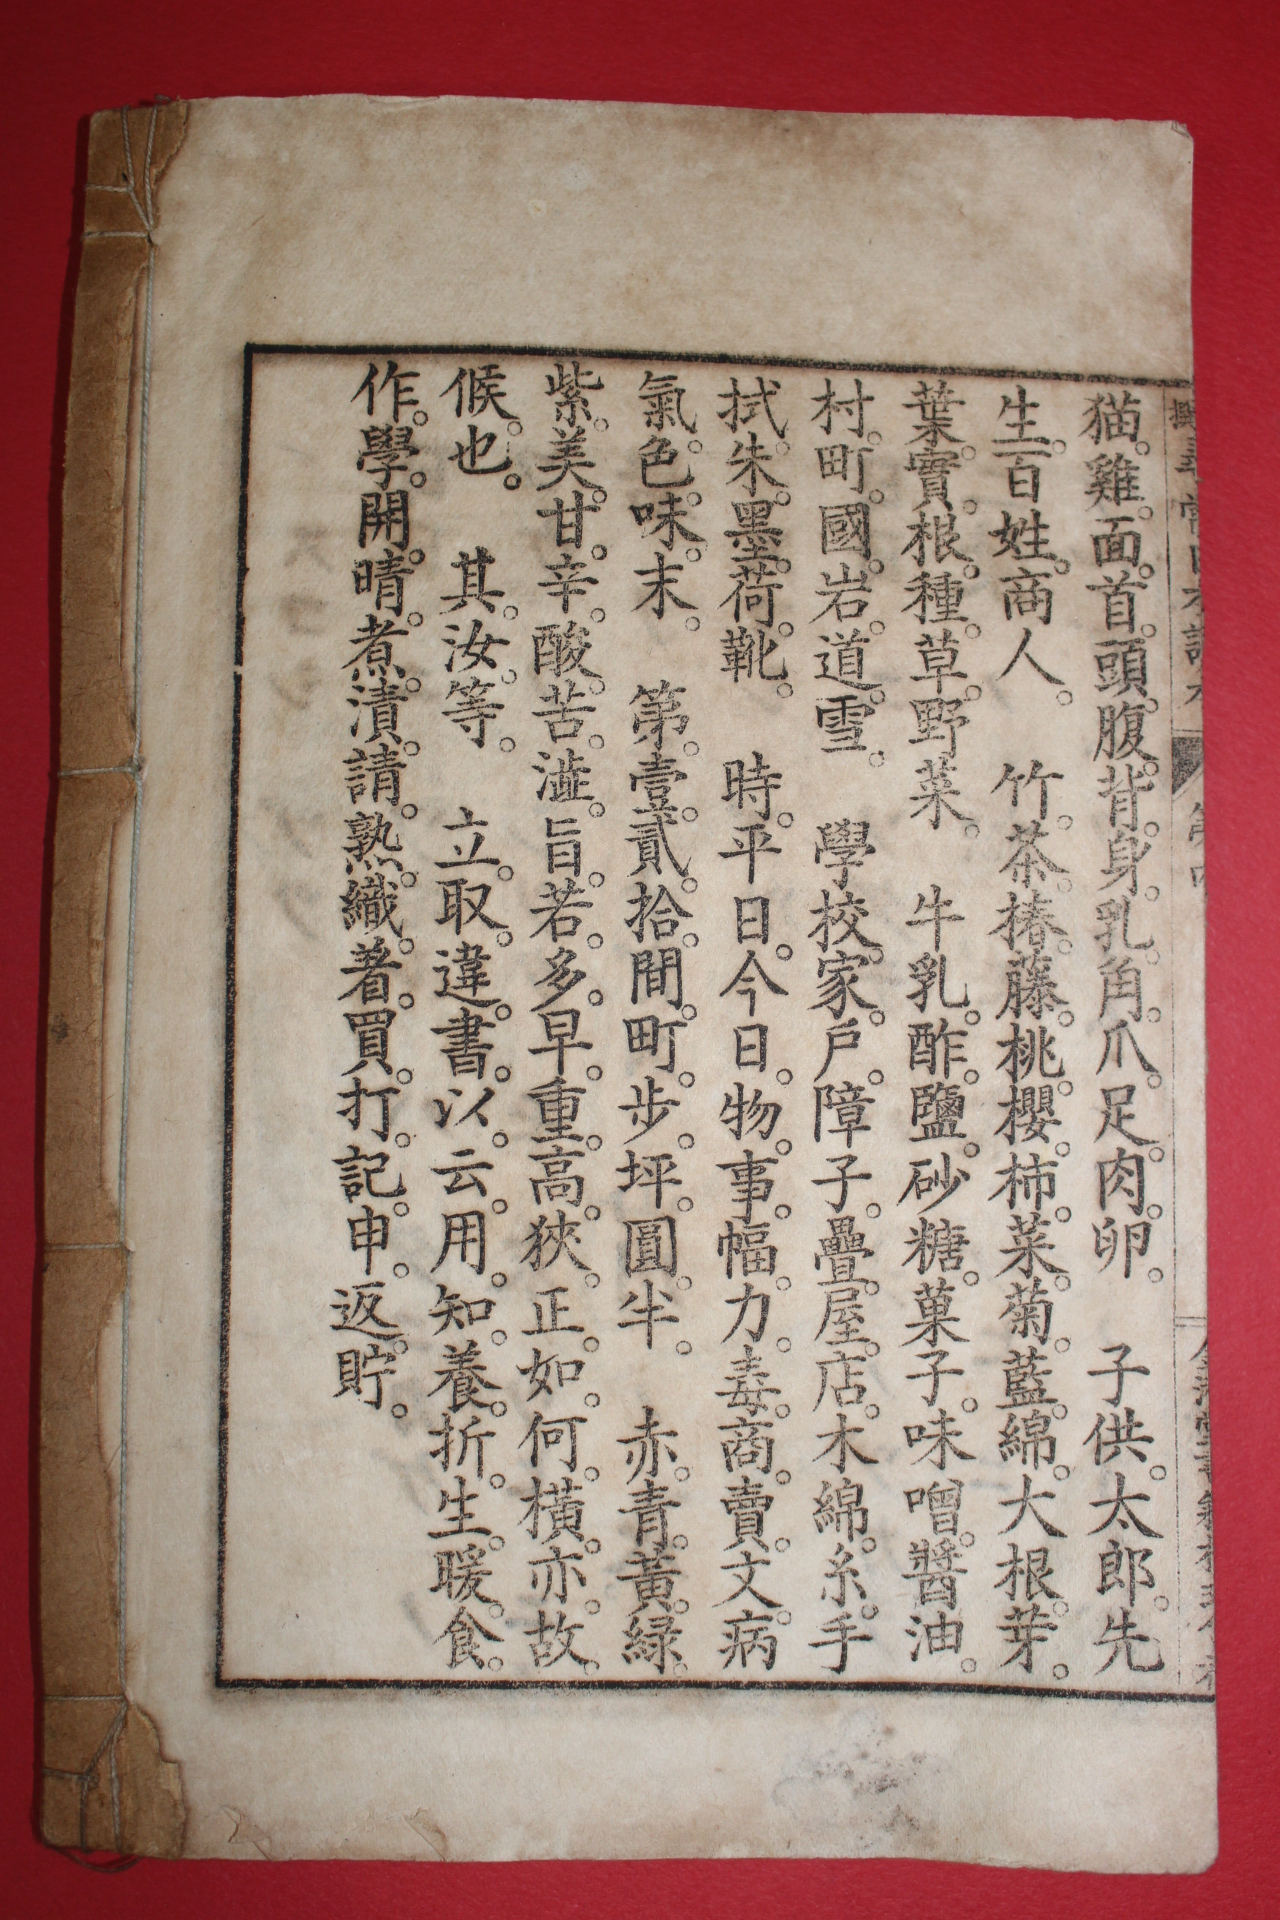 猫。雞。面。首。頭。腹。背。身。乳。角。爪。足。肉。卵。　子供。太郎。先
生。百姓。商人。　竹。茶。椿。藤。桃。櫻。柿。菜。菊。藍。綿。大根。芽。
葉。實。根。種。草。野菜。　牛乳。酢。鹽。砂糖。菓子。味噌。醬油。
村。町。國。岩。道。雪。　學校。家。戶。障子。疊。屋。店。木綿。糸。手
拭。朱。墨。荷。靴。　時。平日。今日。物。事。幅。力。毒。商。賣。文。病
氣。色。味。末。　第。壹。貳。拾。間。町。步。坪。圓。半。　赤。青。黃。綠
紫。美。甘。辛。酸。苦。澁。旨。若。多。早。重。高。狹。正。如。何。橫。亦。故。
候。也。　其。汝。等。　立。取。違。書。以。云。用。知。養。折。生。暖。食。
作。學。開。晴。煮。漬。請。熟。織。着。買。打。記。申。返。貯。